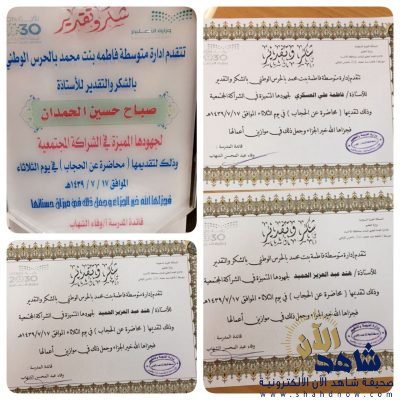 شكر وتقدير
2030
تتقدم ادارة متوسطة فاطمه بنت محمد بالحرس الوطني
بالشكر والتقدير للأستاذة
صباح حسين الحمدان
لجهودها المميزة في الشراكة المجتمعية
وذلك لتقديمها ( محاضرة عن الحجاب ) في يوم الثلاثاء
الموافق ١٧ / ٧ / ١٤٣٩هـ
فجزاها الله خير الجزاء وجعل ذلك في ميزان حسناتها
قائدة المدرسة / وفاء الشهاب
شكر وتقدير
تتقدم إدارة متوسطة فاطمة بنت محمد بالحرس الوطني بالشكر والتقدير
للأستاذة / فاطمة علي العسكري لجهودها المتميزة في الشراكة المجتمعية
وذلك لتقديمها ( محاضرة عن الحجاب ) في يوم الثلاثاء الموافق ١٤٣٩/٧/١٧هـ
فجزاها الله خير الجزاء وجعل ذلك في موازين أعمالها
قائدة المدرسة
وفاء عبد المحسن الشهاب
شكر وتقدير
2030
تتقدم إدارة متوسطة فاطمة بنت محمد بالحرس الوطني بالشكر والتقدير
للأستاذة / هند عبد العزيز الحميد لجهودها المتميزة في الشراكة المجتمعية
وذلك لتقديمها ( محاضرة عن الحجاب ) في يوم الثلاثاء الموافق ١٤٣٩/٧/١٧هـ
فجزاها الله خير الجزاء وجعل ذلك في موازين أعمالها
قائدة المدرسة
وفاء عبد المحسن الشهاب
شكر وتقدير
2030
تتقدم إدارة متوسطة فاطمة بنت محمد بالحرس الوطني بالشكر والتقدير
للأستاذة / هند عبد العزيز الحميد لجهودها المتميزة في الشراكة المجتمعية
وذلك لتقديمها ( محاضرة عن الحجاب ) في يوم الثلاثاء الموافق ١٤٣٩/٧/١٧هـ
فجزاها الله خير الجزاء وجعل ذلك في موازين أعمالها
قائدة المدرسة
وفاء عبد المحسن الشهاب
شاهد الآن
صحيفة شاهد الآن الالكترونية
www.shahdnow.com